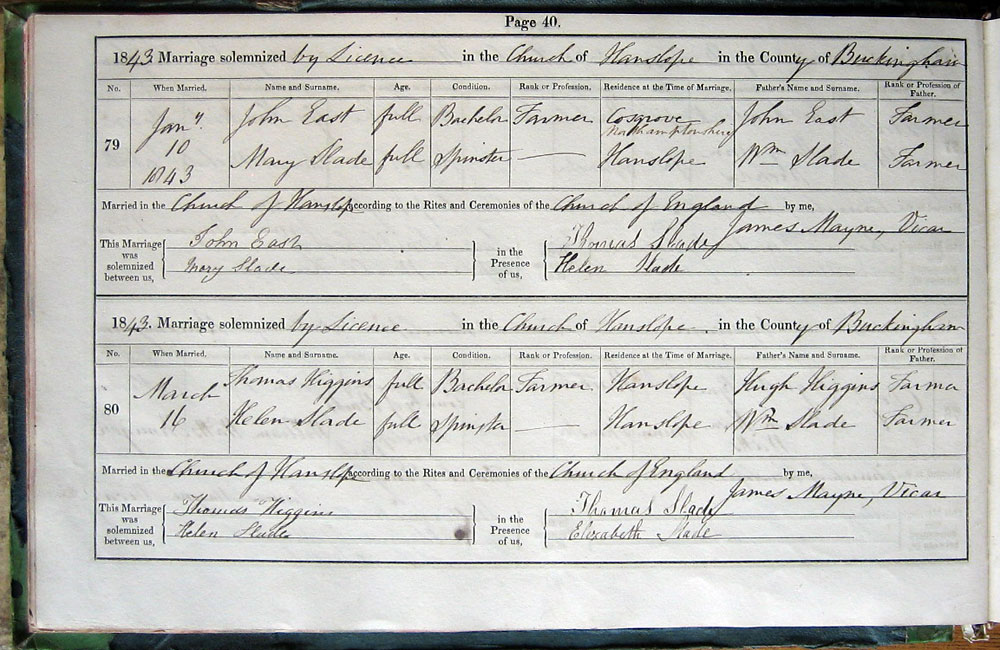 Page 40.
1843 Marriage solemnized by Licence in the Church of Hanslope in the County of Buckingham
No. When Married. Name and Surname. Age. Condition. Rank or Profession. Residence at the Time of Marriage. Father's Name and Surname. Rank or Profession of Father.
79 Jany. 10 1843 John East full Bachelor Farmer Cosgrove Northamptonshire John East Farmer
Mary Slade full Spinster — Hanslope Wm Slade Farmer
Married in the Church of Hanslope according to the Rites and Ceremonies of the Church of England by me,
James Mayne, Vicar
This Marriage was solemnized between us, John East in the Presence of us, Thomas Slade
Mary Slade Helen Slade
1843. Marriage solemnized by Licence in the Church of Hanslope. in the County of Buckingham
No. When Married. Name and Surname. Age. Condition. Rank or Profession. Residence at the Time of Marriage. Father's Name and Surname. Rank or Profession of Father.
80 March 16 Thomas Higgins full Bachelor Farmer Hanslope Hugh Higgins Farmer
Helen Slade full Spinster — Hanslope Wm Slade Farmer
Married in the Church of Hanslope according to the Rites and Ceremonies of the Church of England by me,
James Mayne, Vicar
This Marriage was solemnized between us, Thomas Higgins in the Presence of us, Thomas Slade
Helen Slade Elizabeth Slade